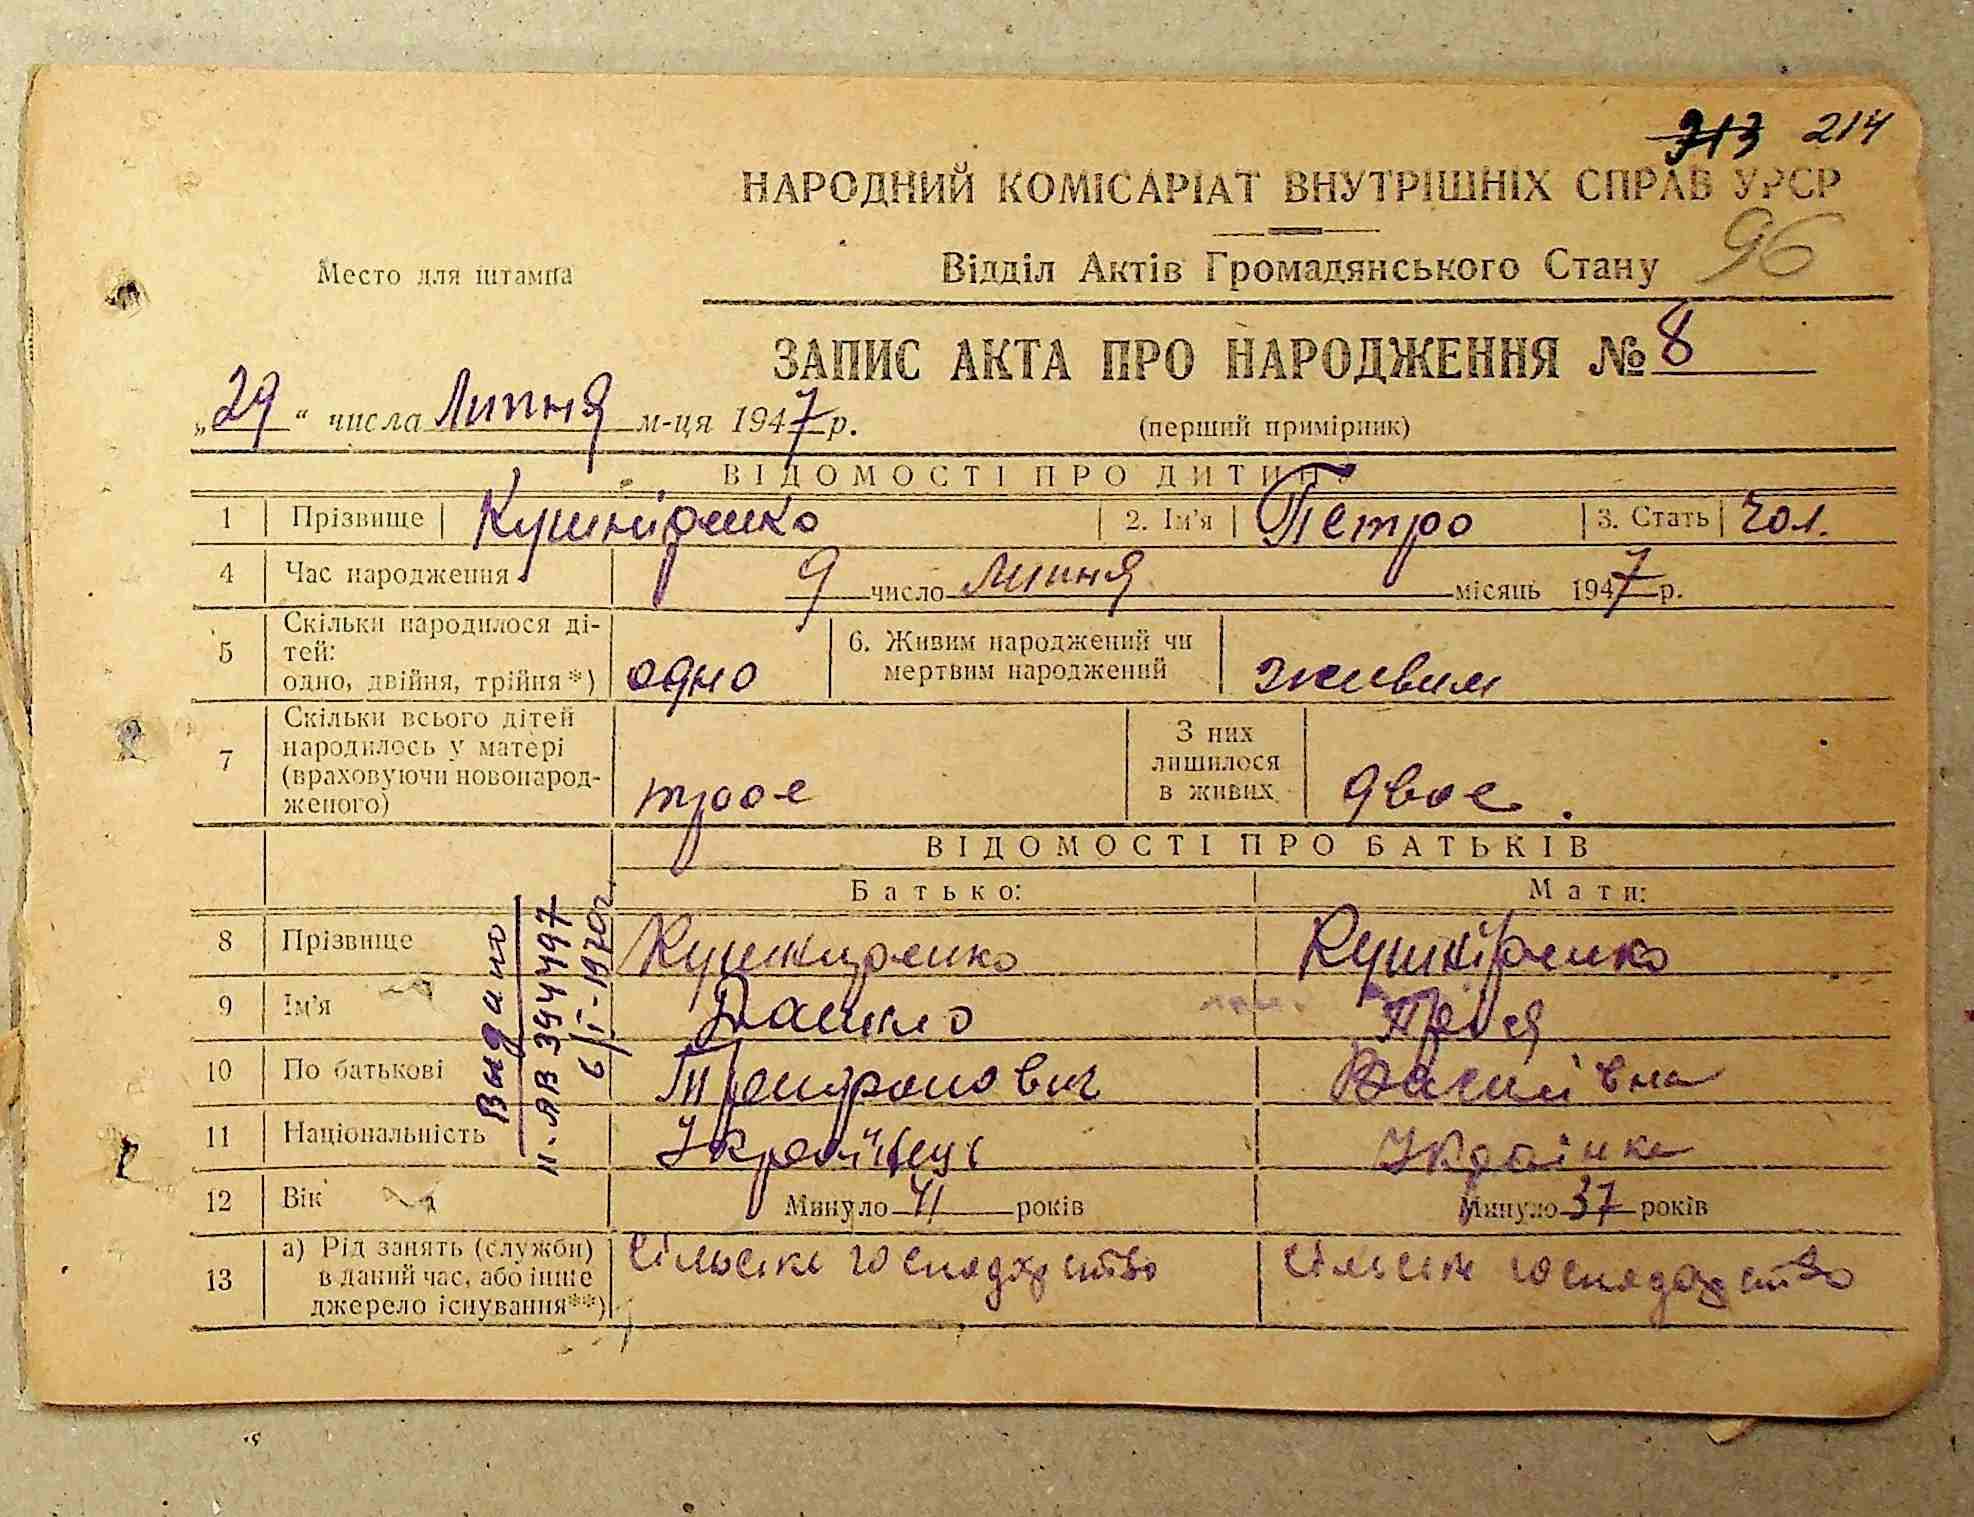 213 214
НАРОДНИЙ КОМІСАРІАТ ВНУТРІШНІХ СПРАВ УРСР
96
Место для штампа
Відділ Актів Громадянського Стану
ЗАПИС АКТА ПРО НАРОДЖЕННЯ № 8
„29“ числа Липня м-ця 1947 р.
(перший примірник)
ВІДОМОСТІ ПРО ДИТИНУ
1 Прізвище Кушніренко 2. Ім'я Петро 3. Стать Чол.
4 Час народження 9 число Липня місяць 1947 р.
5 Скільки народилося ді-
тей:
одно, двійня, трійня*) одно
6. Живим народжений чи
мертвим народжений живим
7 Скільки всього дітей
народилось у матері
(враховуючи новонарод-
женого) троє
З них
лишилося
в живих двоє.
ВІДОМОСТІ ПРО БАТЬКІВ
Батько: Мати:
8 Прізвище Кушниренко Кушніренко
9 Ім'я Данило
10 По батькові Василівна
11 Національність Українець Українка
12 Вік Минуло 41 років Минуло 37 років
13 а) Рід занять (служби)
в даний час, або інше
джерело існування**)
сільське господарство сільське господарство
Выдано
II-АВ 3944797
6/I-1970г.